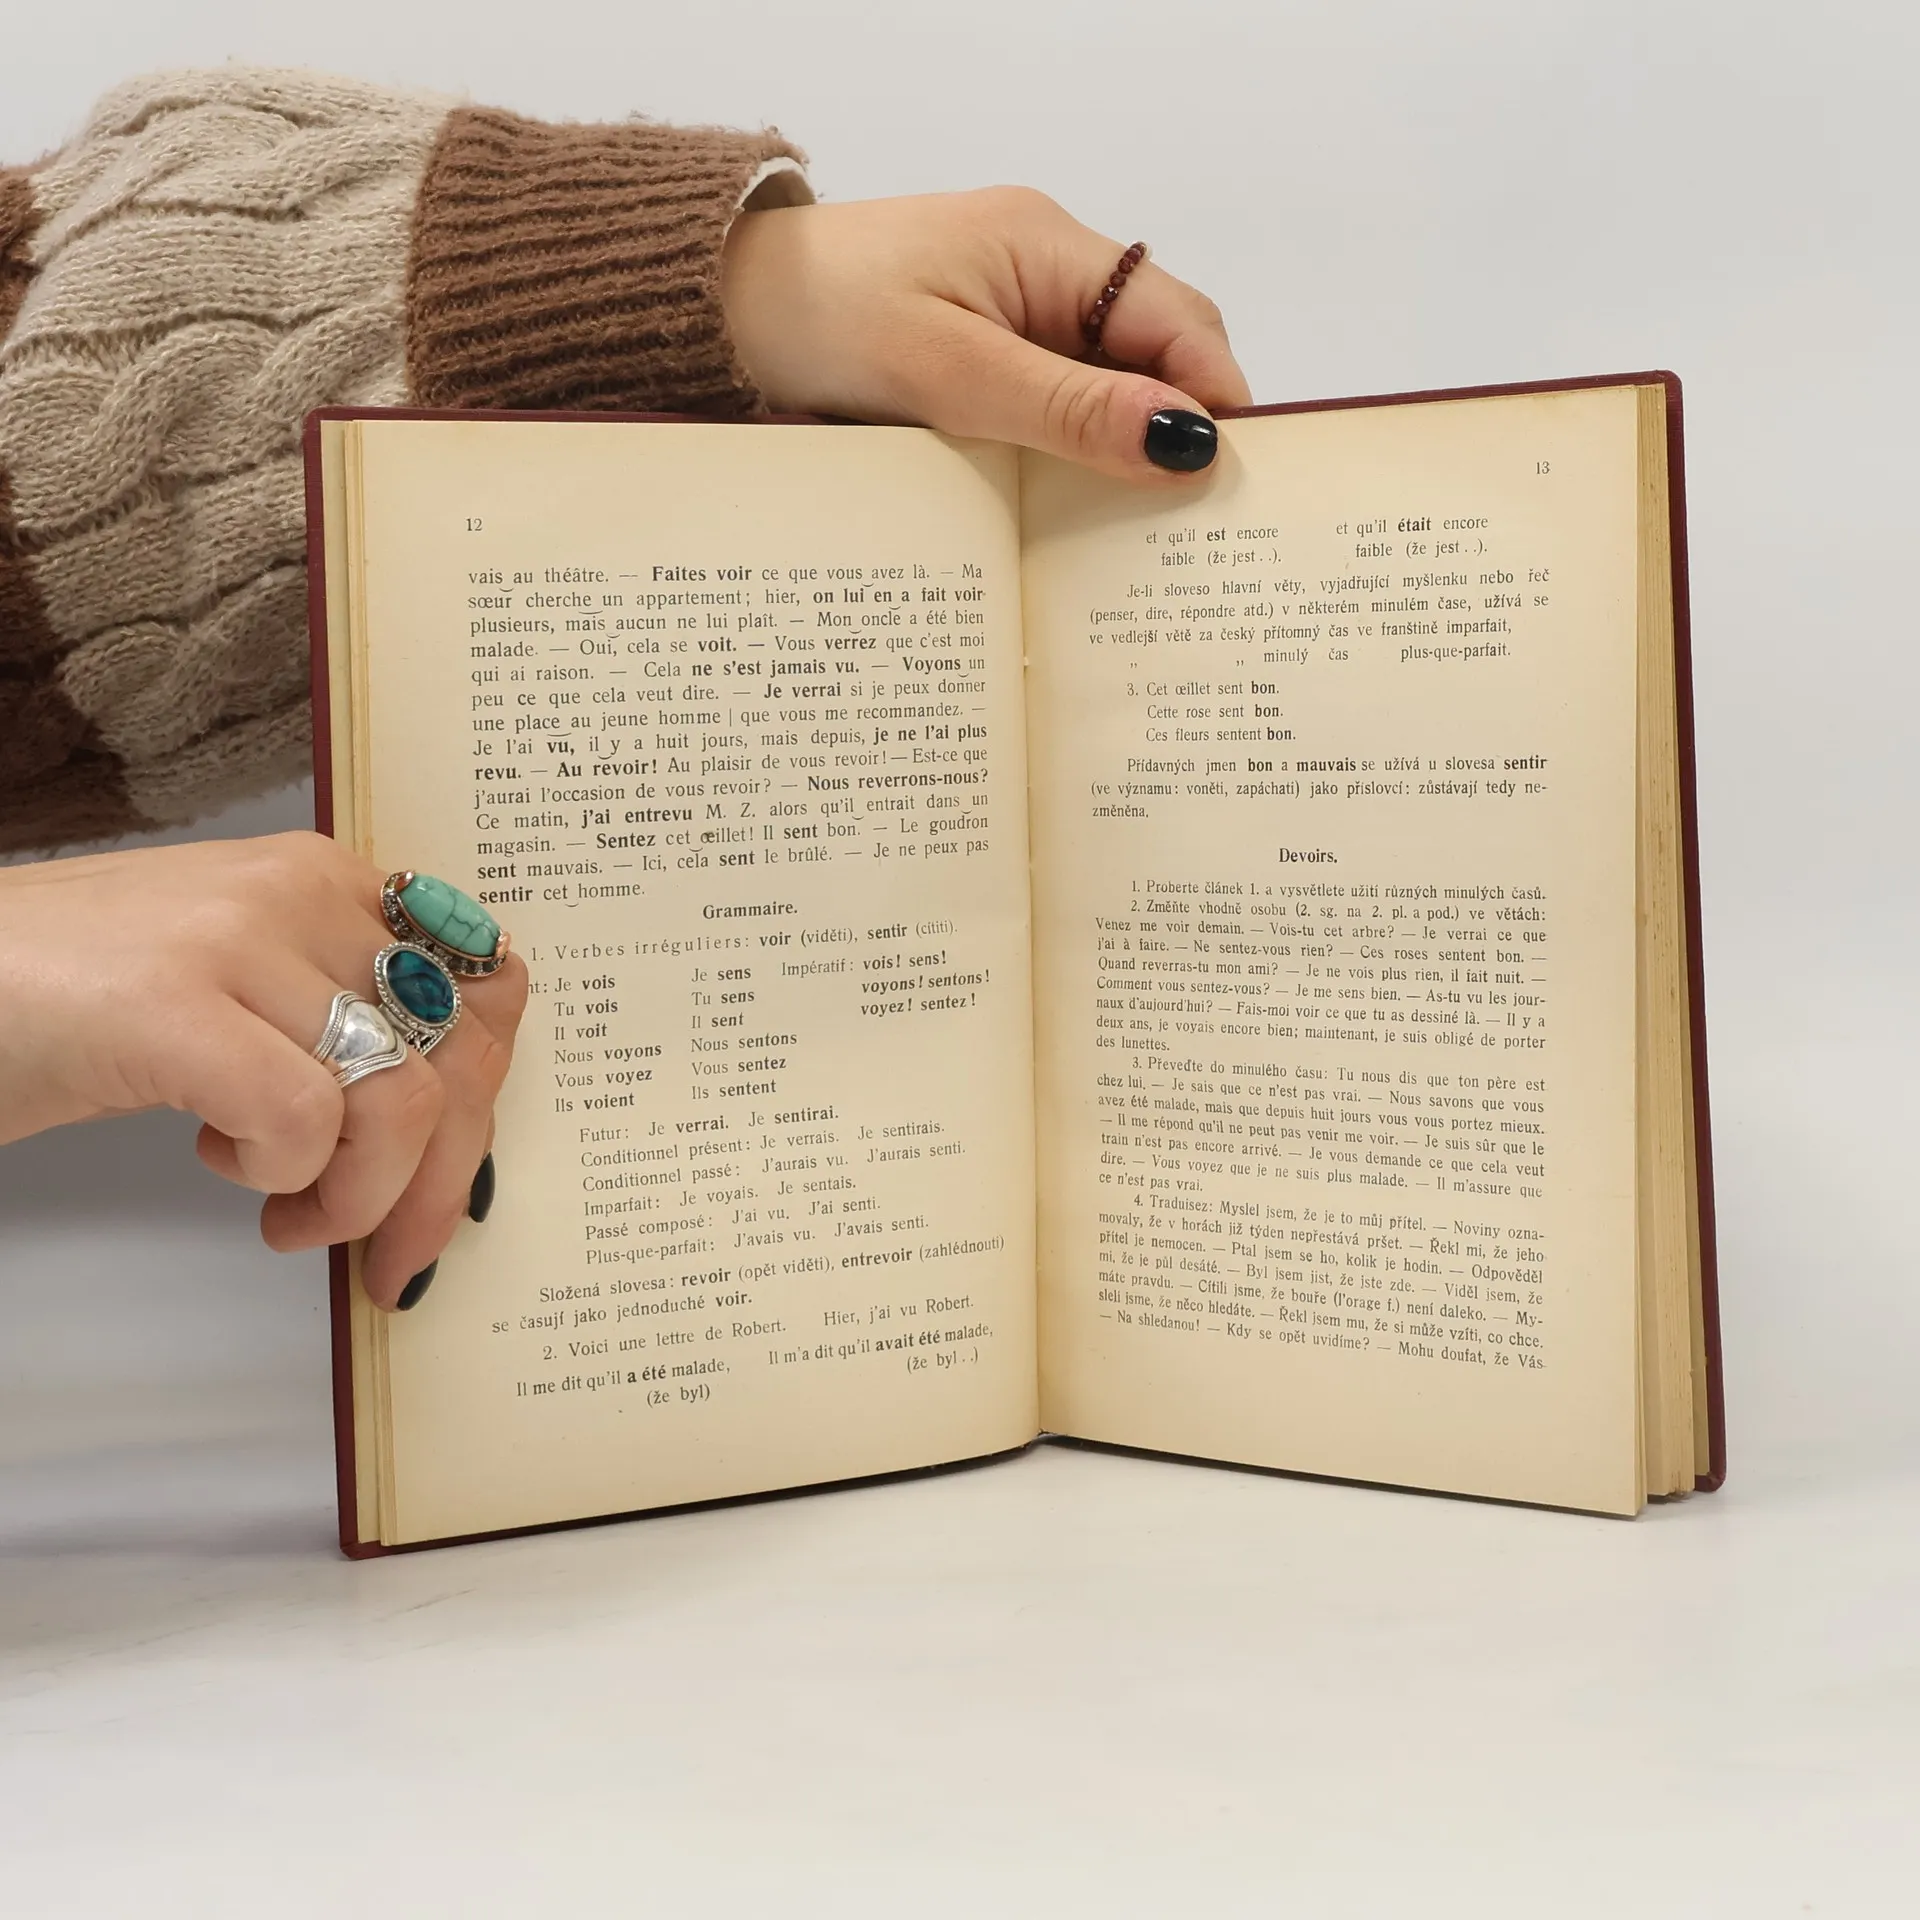 12
vais au théâtre. — Faites voir ce que vous avez là. — Ma
sœur cherche un appartement; hier, on lui en a fait voir
plusieurs, mais aucun ne lui plaît. — Mon oncle a été bien
malade. — Oui, cela se voit. — Vous verrez que c'est moi
qui ai raison. — Cela ne s'est jamais vu. — Voyons un
peu ce que cela veut dire. — Je verrai si je peux donner
une place au jeune homme | que vous me recommandez. —
Je l'ai vu, il y a huit jours, mais depuis, je ne l'ai plus
revu. — Au revoir! Au plaisir de vous revoir! — Est-ce que
j'aurai l'occasion de vous revoir? — Nous reverrons-nous?
Ce matin, j'ai entrevu M. Z. alors qu'il entrait dans un
magasin. — Sentez cet œillet! Il sent bon. — Le goudron
sent mauvais. — Ici, cela sent le brûlé. — Je ne peux pas
sentir cet homme.
Grammaire.
1. Verbes irréguliers: voir (viděti), sentir (cítiti).
nt: Je vois Je sens Impératif: vois! sens!
Tu vois Tu sens voyons! sentons!
Il voit Il sent voyez! sentez!
Nous voyons Nous sentons
Vous voyez Vous sentez
Ils voient Ils sentent
Futur: Je verrai. Je sentirai.
Conditionnel présent: Je verrais. Je sentirais.
Conditionnel passé: J'aurais vu. J'aurais senti.
Imparfait: Je voyais. Je sentais.
Passé composé: J'ai vu. J'ai senti.
Plus-que-parfait: J'avais vu. J'avais senti.
Složená slovesa: revoir (opět viděti), entrevoir (zahlédnouti)
se časují jako jednoduché voir.
2. Voici une lettre de Robert. Hier, j'ai vu Robert.
Il me dit qu'il a été malade, Il m'a dit qu'il avait été malade,
(že byl) (že byl . .)
13
et qu'il est encore et qu'il était encore
faible (že jest . .). faible (že jest . .).
Je-li sloveso hlavní věty, vyjadřující myšlenku nebo řeč
(penser, dire, répondre atd.) v některém minulém čase, užívá se
ve vedlejší větě za český přítomný čas ve franštině imparfait,
„ „ minulý čas plus-que-parfait.
3. Cet œillet sent bon.
Cette rose sent bon.
Ces fleurs sentent bon.
Přídavných jmen bon a mauvais se užívá u slovesa sentir
(ve významu: voněti, zapáchati) jako příslovcí: zůstávají tedy ne-
změněna.
Devoirs.
1. Proberte článek 1. a vysvětlete užití různých minulých časů.
2. Změňte vhodně osobu (2. sg. na 2. pl. a pod.) ve větách:
Venez me voir demain. — Vois-tu cet arbre? — Je verrai ce que
j'ai à faire. — Ne sentez-vous rien? — Ces roses sentent bon. —
Quand reverras-tu mon ami? — Je ne vois plus rien, il fait nuit. —
Comment vous sentez-vous? — Je me sens bien. — As-tu vu les jour-
naux d'aujourd'hui? — Fais-moi voir ce que tu as dessiné là. — Il y a
deux ans, je voyais encore bien; maintenant, je suis obligé de porter
des lunettes.
3. Převeďte do minulého času: Tu nous dis que ton père est
chez lui. — Je sais que ce n'est pas vrai. — Nous savons que vous
avez été malade, mais que depuis huit jours vous vous portez mieux.
— Il me répond qu'il ne peut pas venir me voir. — Je suis sûr que le
train n'est pas encore arrivé. — Je vous demande ce que cela veut
dire. — Vous voyez que je ne suis plus malade. — Il m'assure que
ce n'est pas vrai.
4. Traduisez: Myslel jsem, že je to můj přítel. — Noviny ozna-
movaly, že v horách již týden nepřestává pršet. — Řekl mi, že jeho
přítel je nemocen. — Ptal jsem se ho, kolik je hodin. — Odpověděl
mi, že je půl desáté. — Byl jsem jist, že jste zde. — Viděl jsem, že
máte pravdu. — Cítili jsme, že bouře (l'orage f.) není daleko. — My-
sleli jsme, že něco hledáte. — Řekl jsem mu, že si může vzíti, co chce.
— Na shledanou! — Kdy se opět uvidíme? — Mohu doufat, že Vás